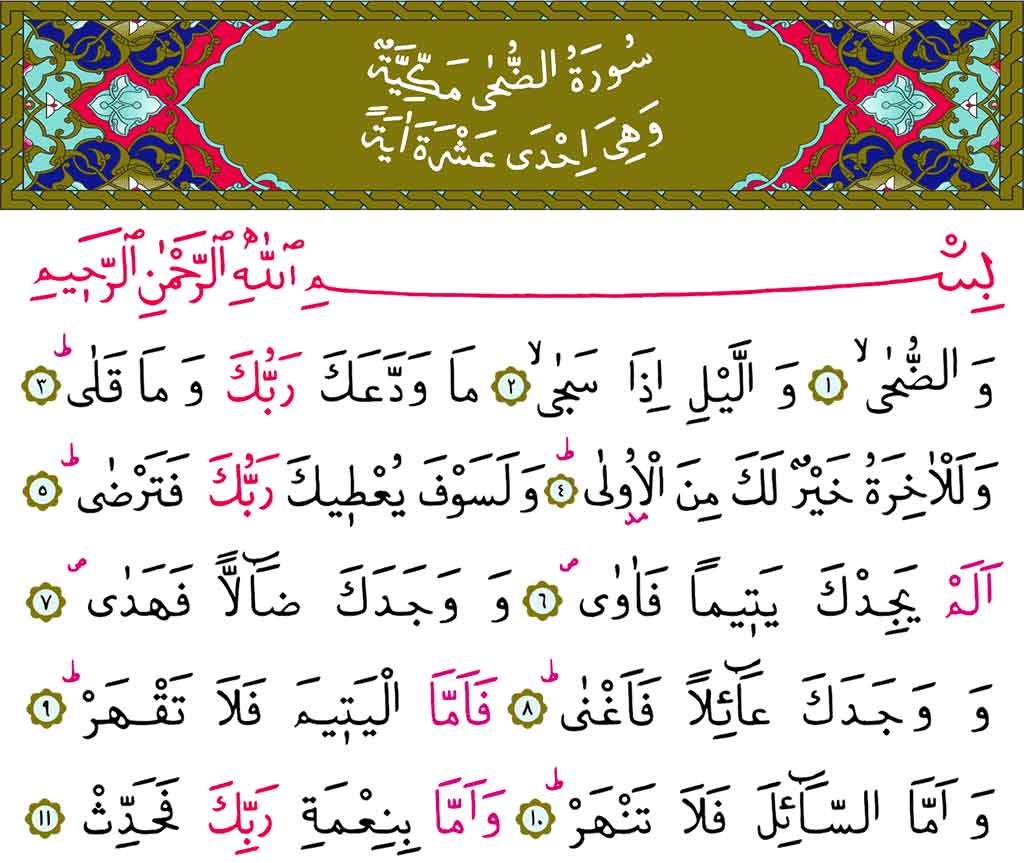 سُورَةُ الضُّحٰى مَكِّيَّةٌ
وَهِىَ اِحْدٰى عَشْرَةَ اٰيَةً
بِسْمِ اللّٰهِ الرَّحْمٰنِ الرَّحٖيمِ
وَالضُّحٰىۙ ١ وَالَّيْلِ اِذَا سَجٰىۙ ٢ مَا وَدَّعَكَ رَبُّكَ وَمَا قَلٰىؕ ٣
وَلَلْاٰخِرَةُ خَيْرٌ لَكَ مِنَ الْاُو۫لٰىؕ ٤ وَلَسَوْفَ يُعْطٖيكَ رَبُّكَ فَتَرْضٰىؕ ٥
اَلَمْ يَجِدْكَ يَتٖيمًا فَاٰوٰىࣕ ٦ وَوَجَدَكَ ضَٓالًّا فَهَدٰىࣕ ٧
وَوَجَدَكَ عَٓائِلًا فَاَغْنٰىؕ ٨ فَاَمَّا الْيَتٖيمَ فَلَا تَقْهَرْؕ ٩
وَاَمَّا السَّٓائِلَ فَلَا تَنْهَرْؕ ١٠ وَاَمَّا بِنِعْمَةِ رَبِّكَ فَحَدِّثْ ١١